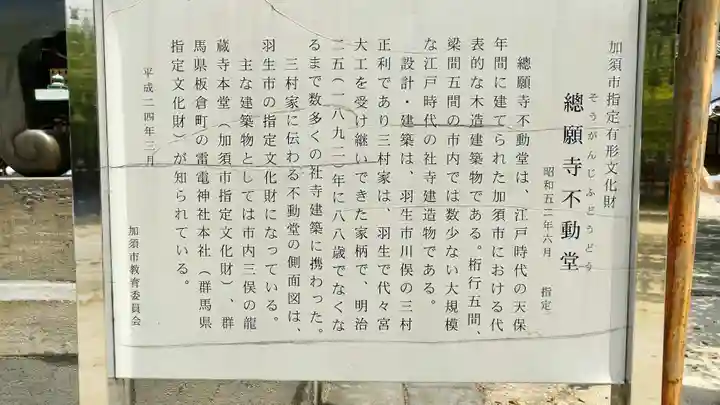 加須市指定有形文化財
總願寺不動堂
そうがんじふどうどう
昭和五二年六月 指定
總願寺不動堂は、江戸時代の天保
年間に建てられた加須市における代
表的な木造建築物である。桁行五間、
梁間五間の市内では数少ない大規模
な江戸時代の社寺建造物である。
設計・建築は、羽生市川俣の三村
正利であり三村家は、羽生で代々宮
大工を受け継いできた家柄で、明治
二五(一八九二)年に八八歳でなくな
るまで数多くの社寺建築に携わった。
三村家に伝わる不動堂の側面図は、
羽生市の指定文化財になっている。
主な建築物としては市内三俣の龍
蔵寺本堂(加須市指定文化財)、群
馬県板倉町の雷電神社本社(群馬県
指定文化財)が知られている。
平成二四年三月
加須市教育委員会